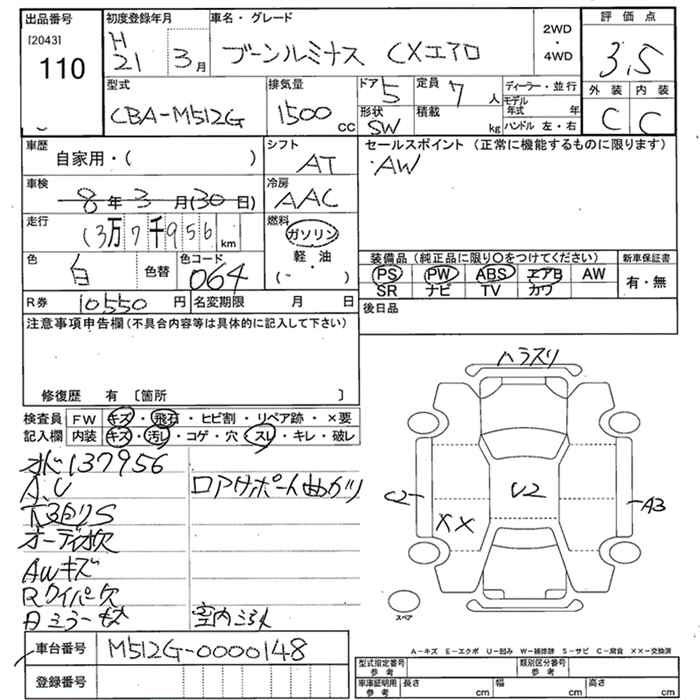 出品番号
[2043]
110
初度登録年月
H
21 3月
車名・グレード
ブーンルミナス CXエアロ
2WD
・
4WD
評価点
3.5
外装 内装
C C
型式
CBA-M512G
排気量
1500 cc
ドア 5
形状 SW
定員 7 人
積載 kg
ディーラー・並行
モデル年式 年
ハンドル 左・右
車歴
自家用・( )
シフト
AT
車検
8年3月(30日)
冷房
AAC
走行
13万7千956 km
燃料
ガソリン
軽・油
( ・ )
色
白
色替
色コード
064
R券 10550円
名変期限 月 日
セールスポイント (正常に機能するものに限ります)
・AW
装備品(純正品に限り○をつけてください)
PS PW ABS エアB AW
SR ナビ TV カワ
新車保証書
有・無
後日品
注意事項申告欄(不具合内容等は具体的に記入して下さい)
修復歴 有 〔箇所 〕
検査員
記入欄
FW キズ・飛石・ヒビ割・リペア跡・×要
内装 キズ・汚レ・コゲ・穴・スレ・キレ・破レ
137956
A.U
下廻りS
オーディオ欠
AWキズ
Rワイパー欠
ロアサポート曲がり
車台番号 M512G-0000148
登録番号
ハラスリ
C2
U2
A3
XX
スペア
A-キズ E-エクボ U-凹み W-補修跡 S-サビ C-腐食 XX-交換済
型式指定番号
参考
類別区分番号
参考
車庫証明用
参考
長さ cm
幅 cm
高さ cm